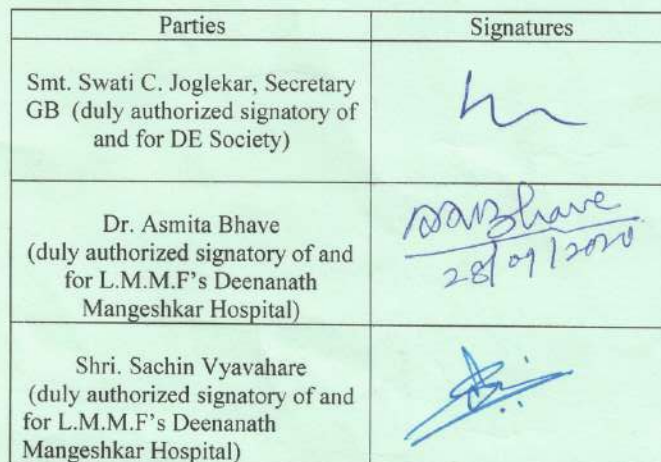 Parties
Signatures
Smt. Swati C. Joglekar, Secretary
GB (duly authorized signatory of
and for DE Society)
Dr. Asmita Bhave
(duly authorized signatory of and
for L.M.M.F's Deenanath
Mangeshkar Hospital)
Bhave
28/09/2020
Shri. Sachin Vyavahare
(duly authorized signatory of and
for L.M.M.F's Deenanath
Mangeshkar Hospital)